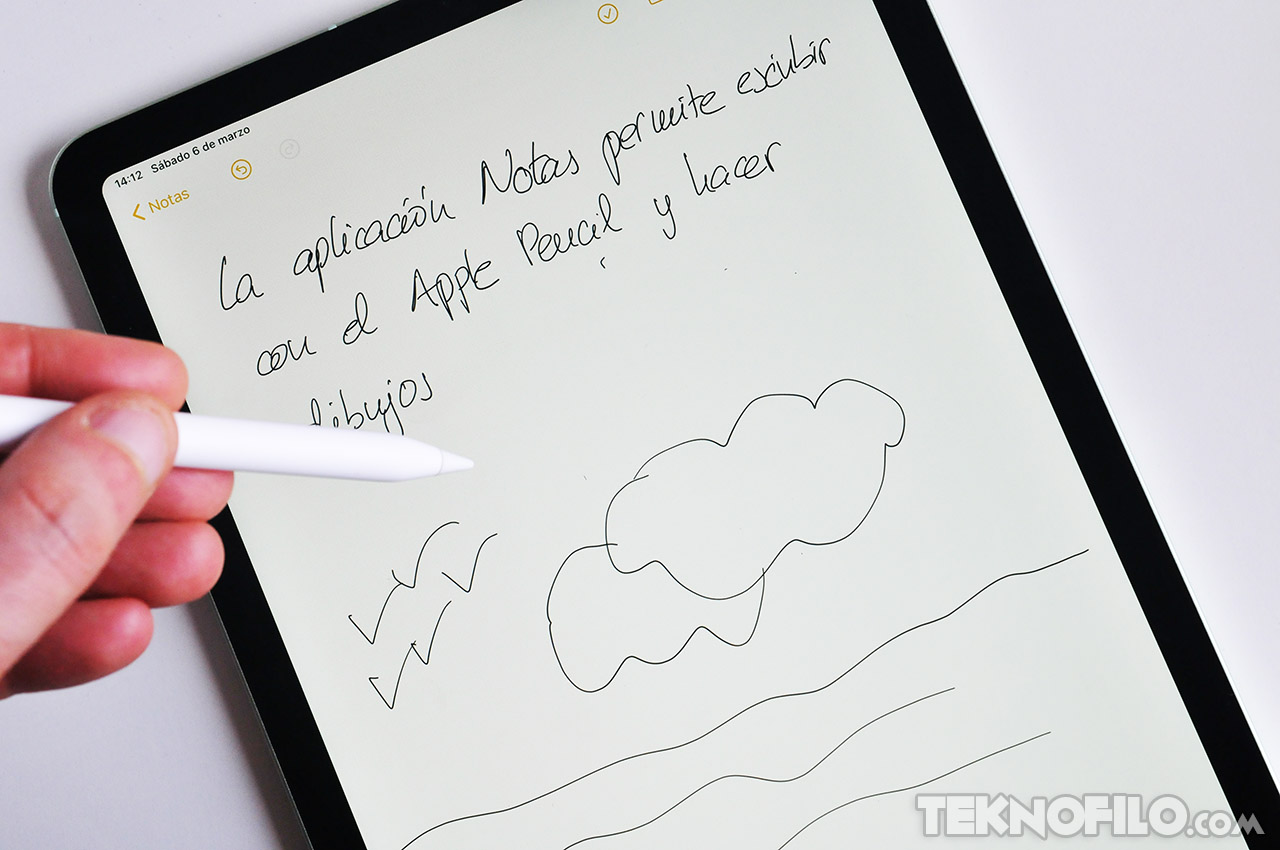 14:12 Sábado 6 de marzo
Notas
La aplicación Notas permite escribir
con el Apple Pencil y hacer
dibujos
TEKNOFILO.COM